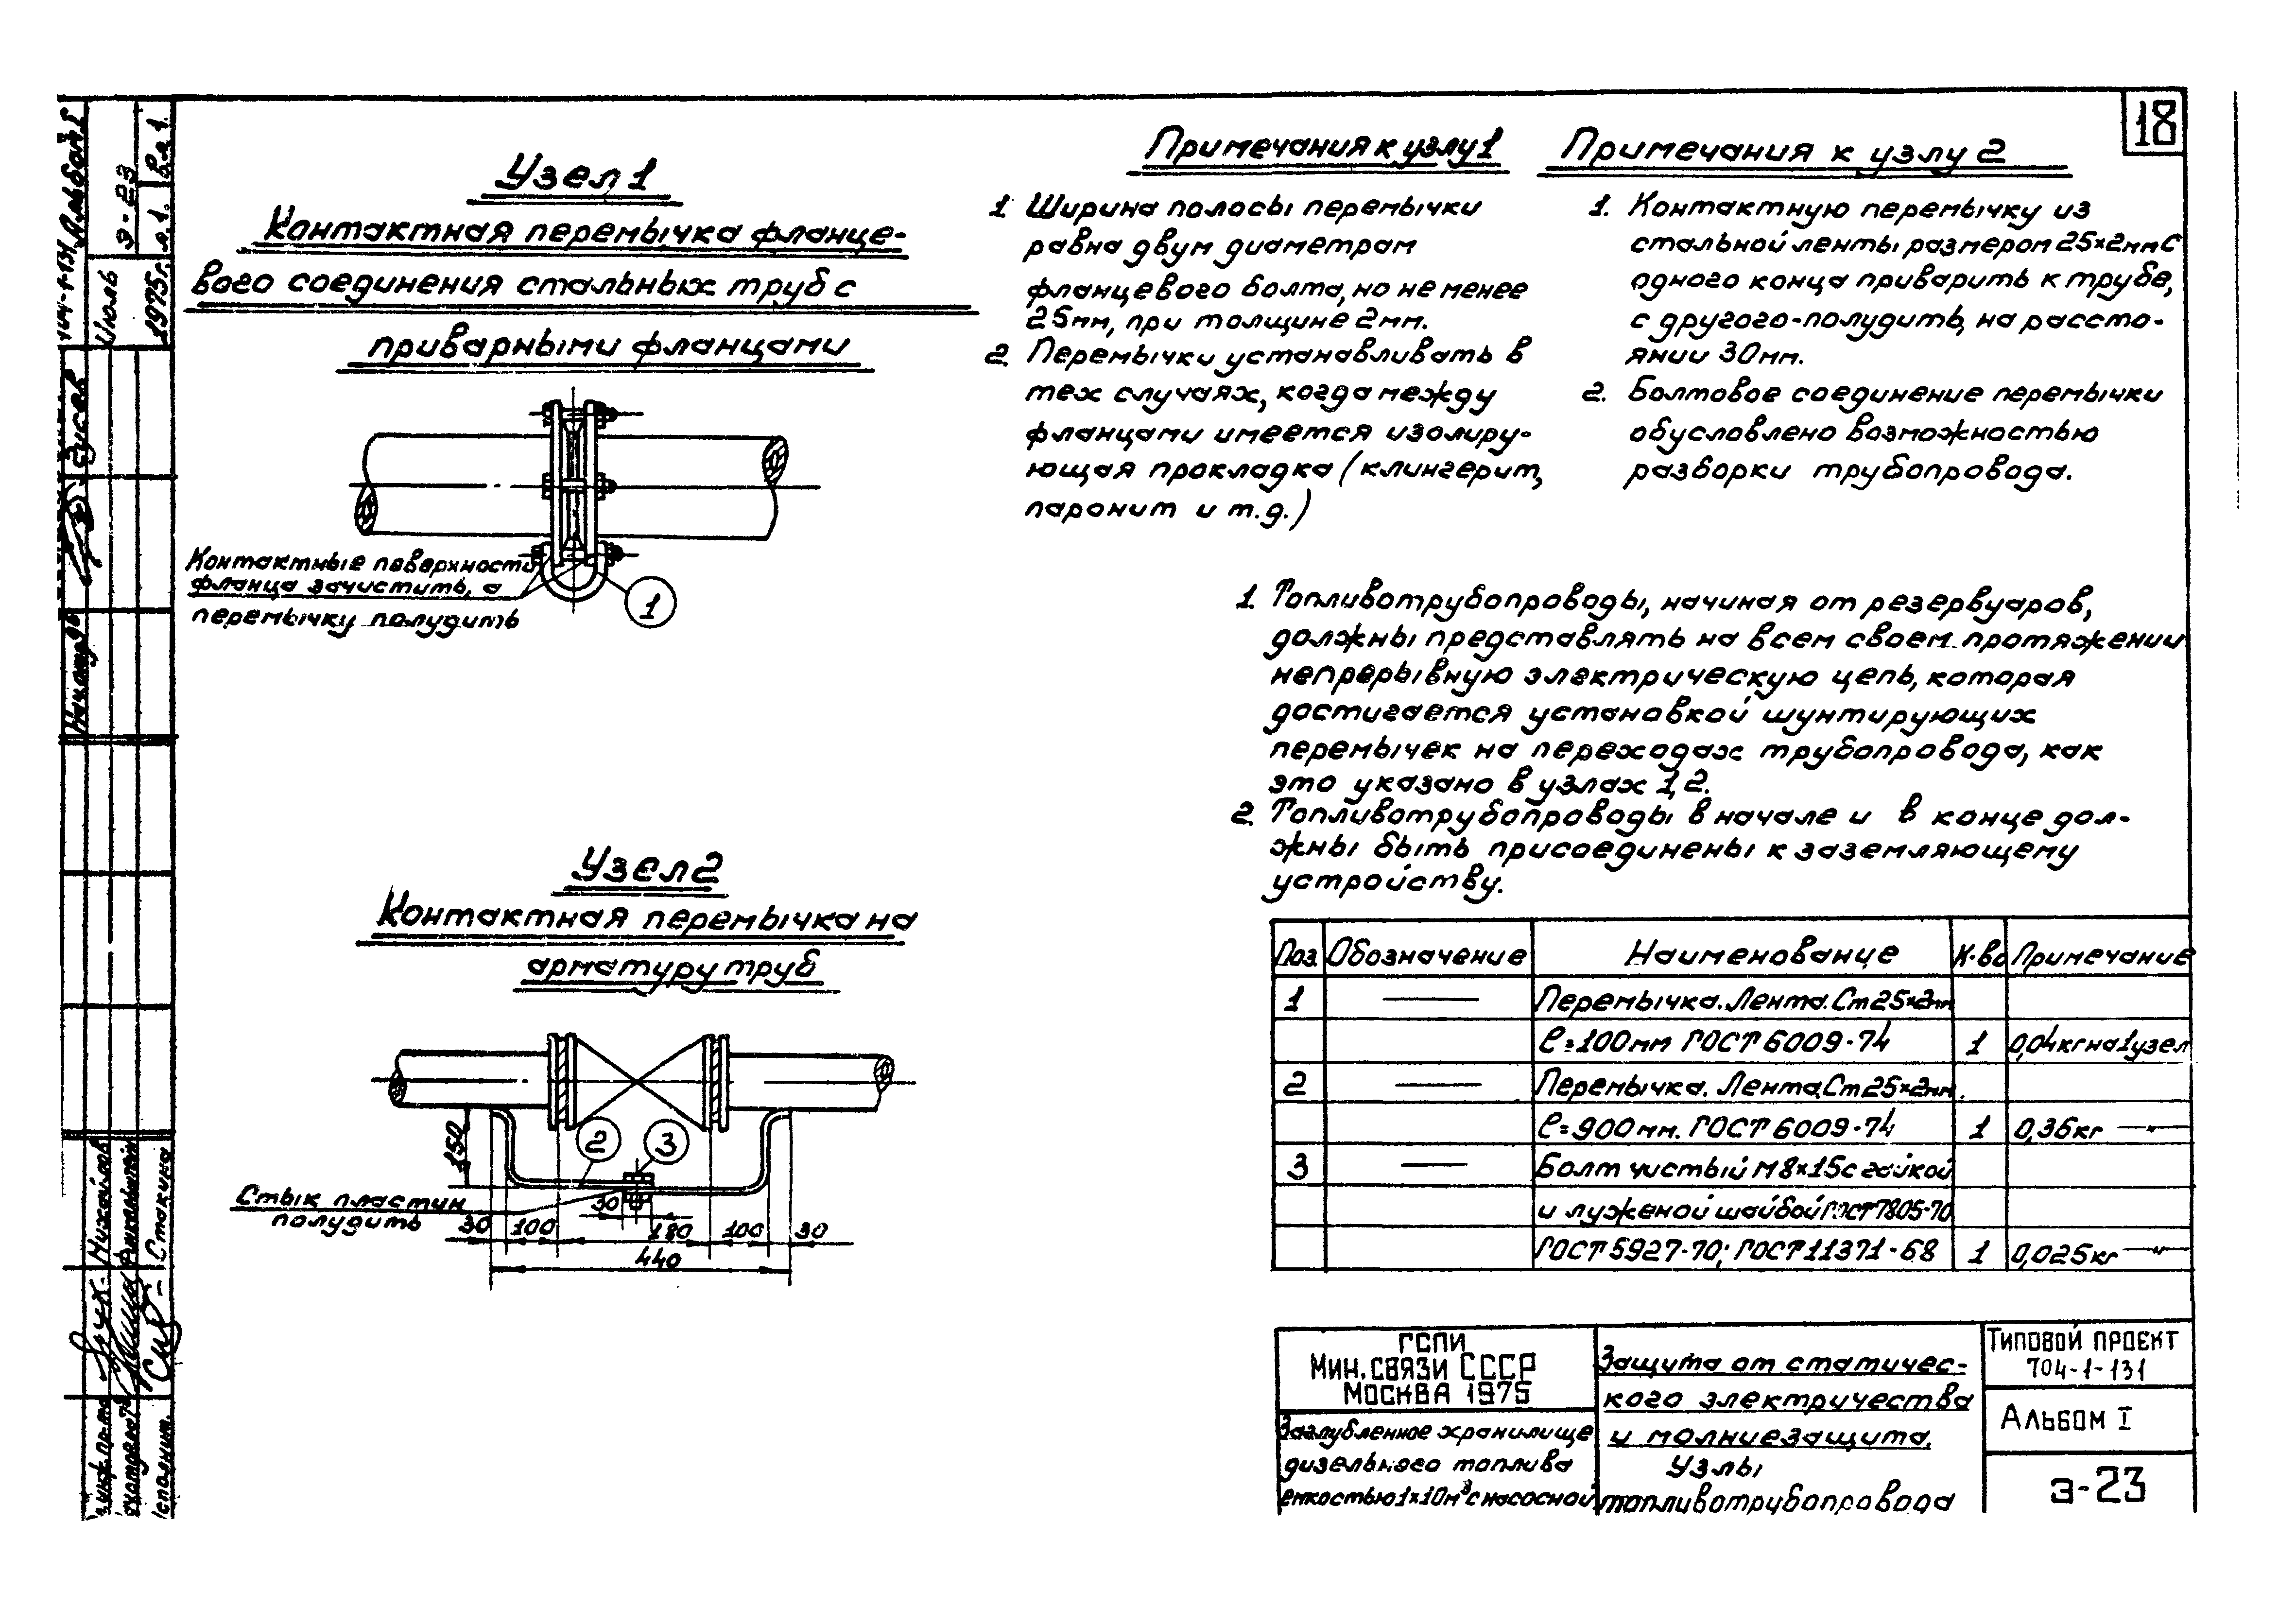 18
Узел 1
Контактная перемычка фланце-
вого соединения стальных труб с
приварными фланцами
Контактные поверхности
фланца зачистить, а
перемычку полудить
1
Узел 2
Контактная перемычка на
арматуру труб
2
3
150
Стык пластин
полудить
30
30 100 180 100 30
440
Примечания к узлу 1
1. Ширина полосы перемычки
равна двум диаметрам
фланцевого болта, но не менее
25мм, при толщине 2мм.
2. Перемычки устанавливать в
тех случаях, когда между
фланцами имеется изолиру-
ющая прокладка (клингерит,
паронит и т.д.)
Примечания к узлу 2
1. Контактную перемычку из
стальной ленты размером 25×2мм с
одного конца приварить к трубе,
с другого-полудить, на рассто-
янии 30мм.
2. Болтовое соединение перемычки
обусловлено возможностью
разборки трубопровода.
1. Топливотрубопроводы, начиная от резервуаров,
должны представлять на всем своем протяжении
непрерывную электрическую цепь, которая
достигается установкой шунтирующих
перемычек на переходах трубопровода, как
это указано в узлах 1,2.
2. Топливотрубопроводы в начале и в конце дол-
жны быть присоединены к заземляющему
устройству.
Поз. Обозначение Наименование К-во Примечание
1 — Перемычка. Лента. Ст 25×2мм
ℓ=100мм ГОСТ 6009-74 1 0,04кг на 1узел
2 — Перемычка. Лента. Ст 25×2мм.
ℓ=900мм. ГОСТ 6009-74 1 0,36кг —"—
3 — Болт чистый М8×15 с гайкой
и луженой шайбой ГОСТ 7805-70
ГОСТ 5927-70; ГОСТ 11371-68 1 0,025кг —"—
ГСПИ
Мин. связи СССР
Москва 1975
Заглубленное хранилище
дизельного топлива
емкостью 1×10м³ с насосной
Защита от статичес-
кого электричества
и молниезащита.
Узлы
топливотрубопровода
Типовой проект
704-1-131
Альбом I
Э-23
Э-23
л.1. В.л 1.
Июль 1975г.
Гусев